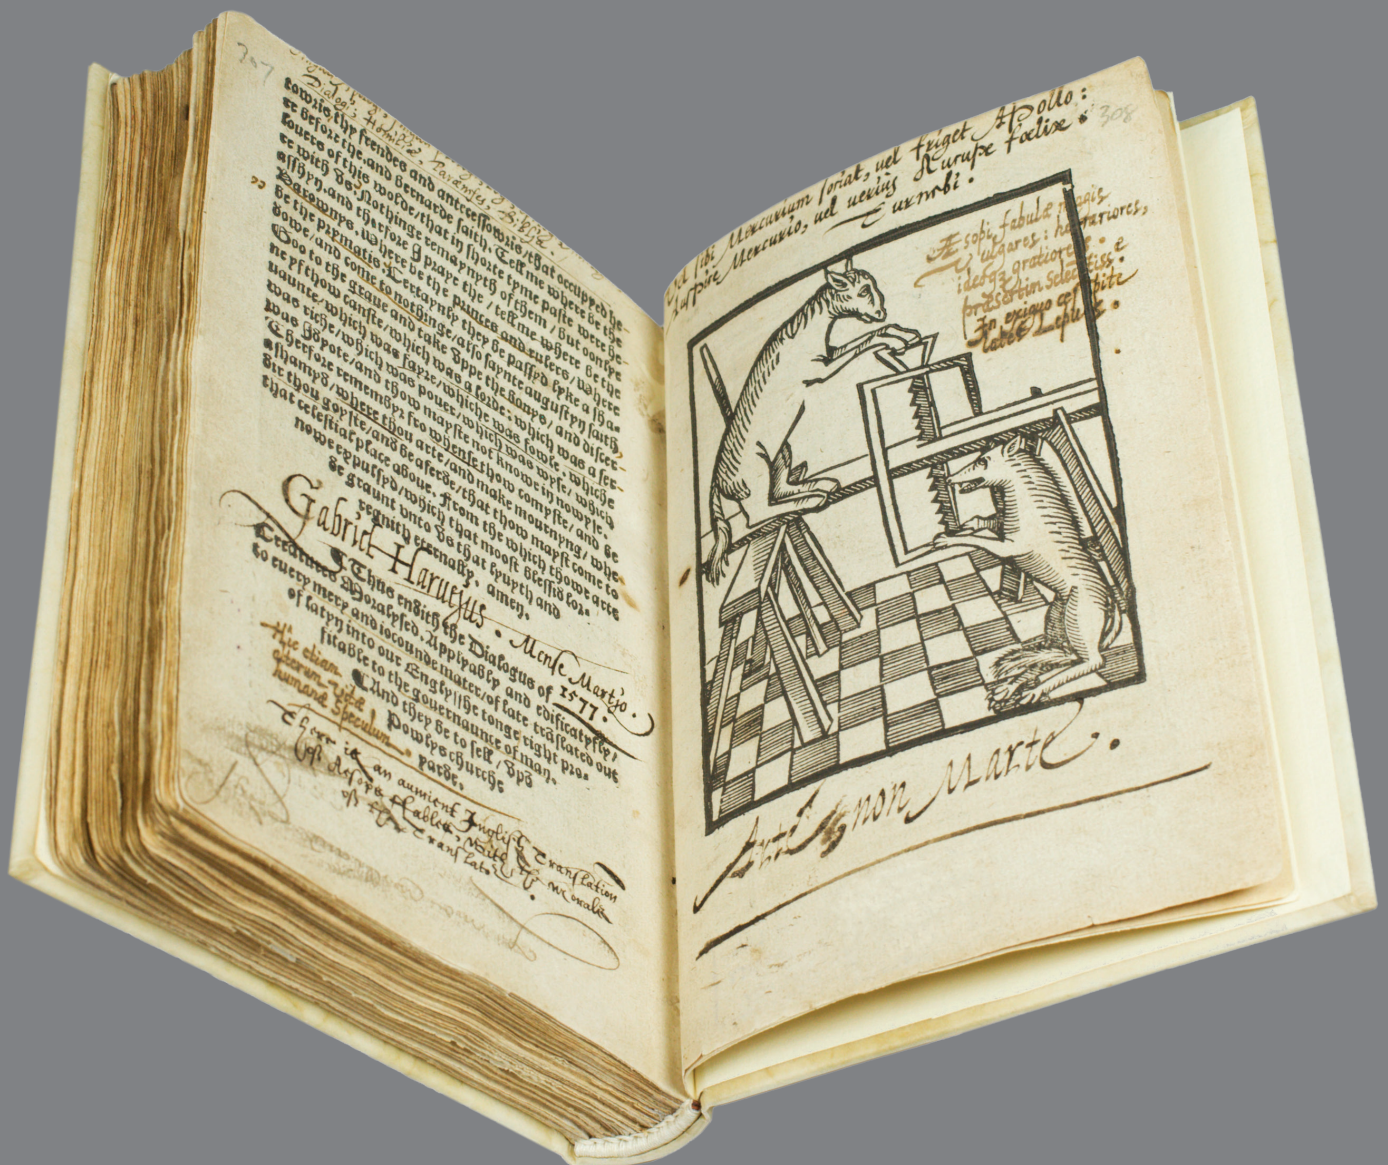 towris, thy frendes and antecessowris, that occuppyd he-
re before the, and Bernarde saith. Tell me where be the
louers of this worlde, that in shorte tyme paste were he-
re with vs. Nothinge remaynyth of them, but oonlye
asshyn. and therfore I pray the, tell me where be the
Barownys, where be the princes and rulers, where
be the prymatis. Certaynly they be passyd lyke a sha-
dowe, and come to nothinge, also saynte augustyn saith,
Goo to the graue and take vppe the banys, and discer-
ne yf thow canste, which was a lorde: which was a ser-
uaunte, which was fayre, whiche was fowle. whiche
was riche, which was pouer, which was wyse, which
was Ydyote, and thow mayste not knowe in nowyse.
Therfore remembyr fro whense thow compste, and be
ashamyd, where thou arte, and make mournyng, whe-
dir thou goyste, and be aferde, that thow mayst come to
that celestial place aboue. From the which thowe arte
nowe expulsyd, which that moost blessid lor-
de graunt vnto vs that lyuyth and
regnith eternally. amen.
Gabriel Haruejus. Mense Martjo. 1577.
Thus endith the Dialogus of
Creatures Moralysed. Applyably and edificatyfly,
to euery mery and iocounde mater, of late trãslated out
of latyn into our Englysshe tonge right pro-
fitable to the gouernaunce of man.
And they be to sell, vpõ
Powlys churche
yarde.
Hic etiam
alterum vitæ
humanæ speculum.
There is an auncient Inglish Translation
of Aesops Fables, with the Morals
of the Translator.
307
308
sibi Mercurium, uel friget Apollo:
Auspice Mercurio, uel uerius Aurupe fœlix:
Æsopi fabulæ magis
Vulgares: narratiores,
ideoq3 gratiores:
præsertim selectiss:
In exiguo cespite
Arte, non Marte.